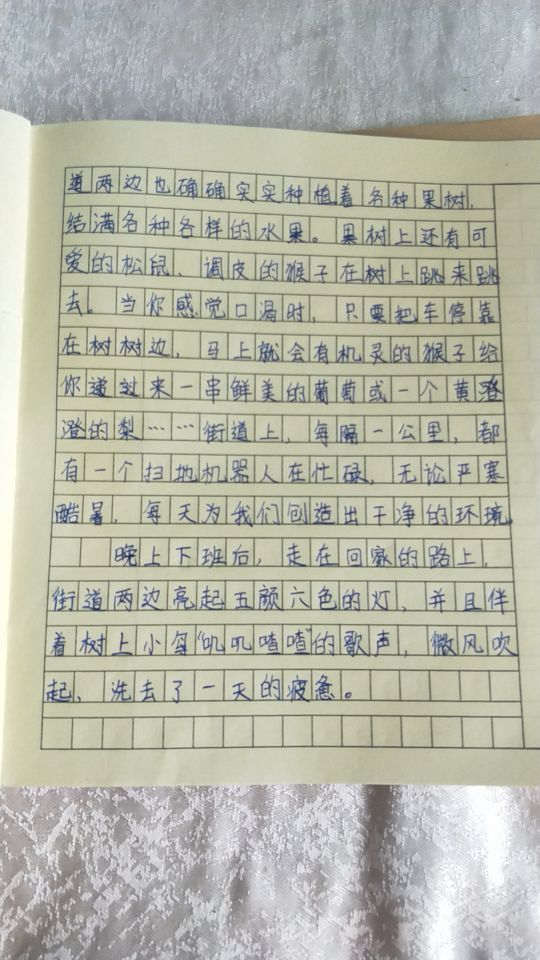 道两边也确确实实种植着各种果树，
结满各种各样的水果。果树上还有可
爱的松鼠、调皮的猴子在树上跳来跳
去。当你感觉口渴时，只要把车停靠
在树树边，马上就会有机灵的猴子给
你递过来一串鲜美的葡萄或一个黄澄
澄的梨……街道上，每隔一公里，都
有一个扫地机器人在忙碌，无论严寒
酷暑，每天为我们创造出干净的环境。
晚上下班后，走在回家的路上，
街道两边亮起五颜六色的灯，并且伴
着树上小每“叽叽喳喳”的歌声，微风吹
起、洗去了一天的疲惫。